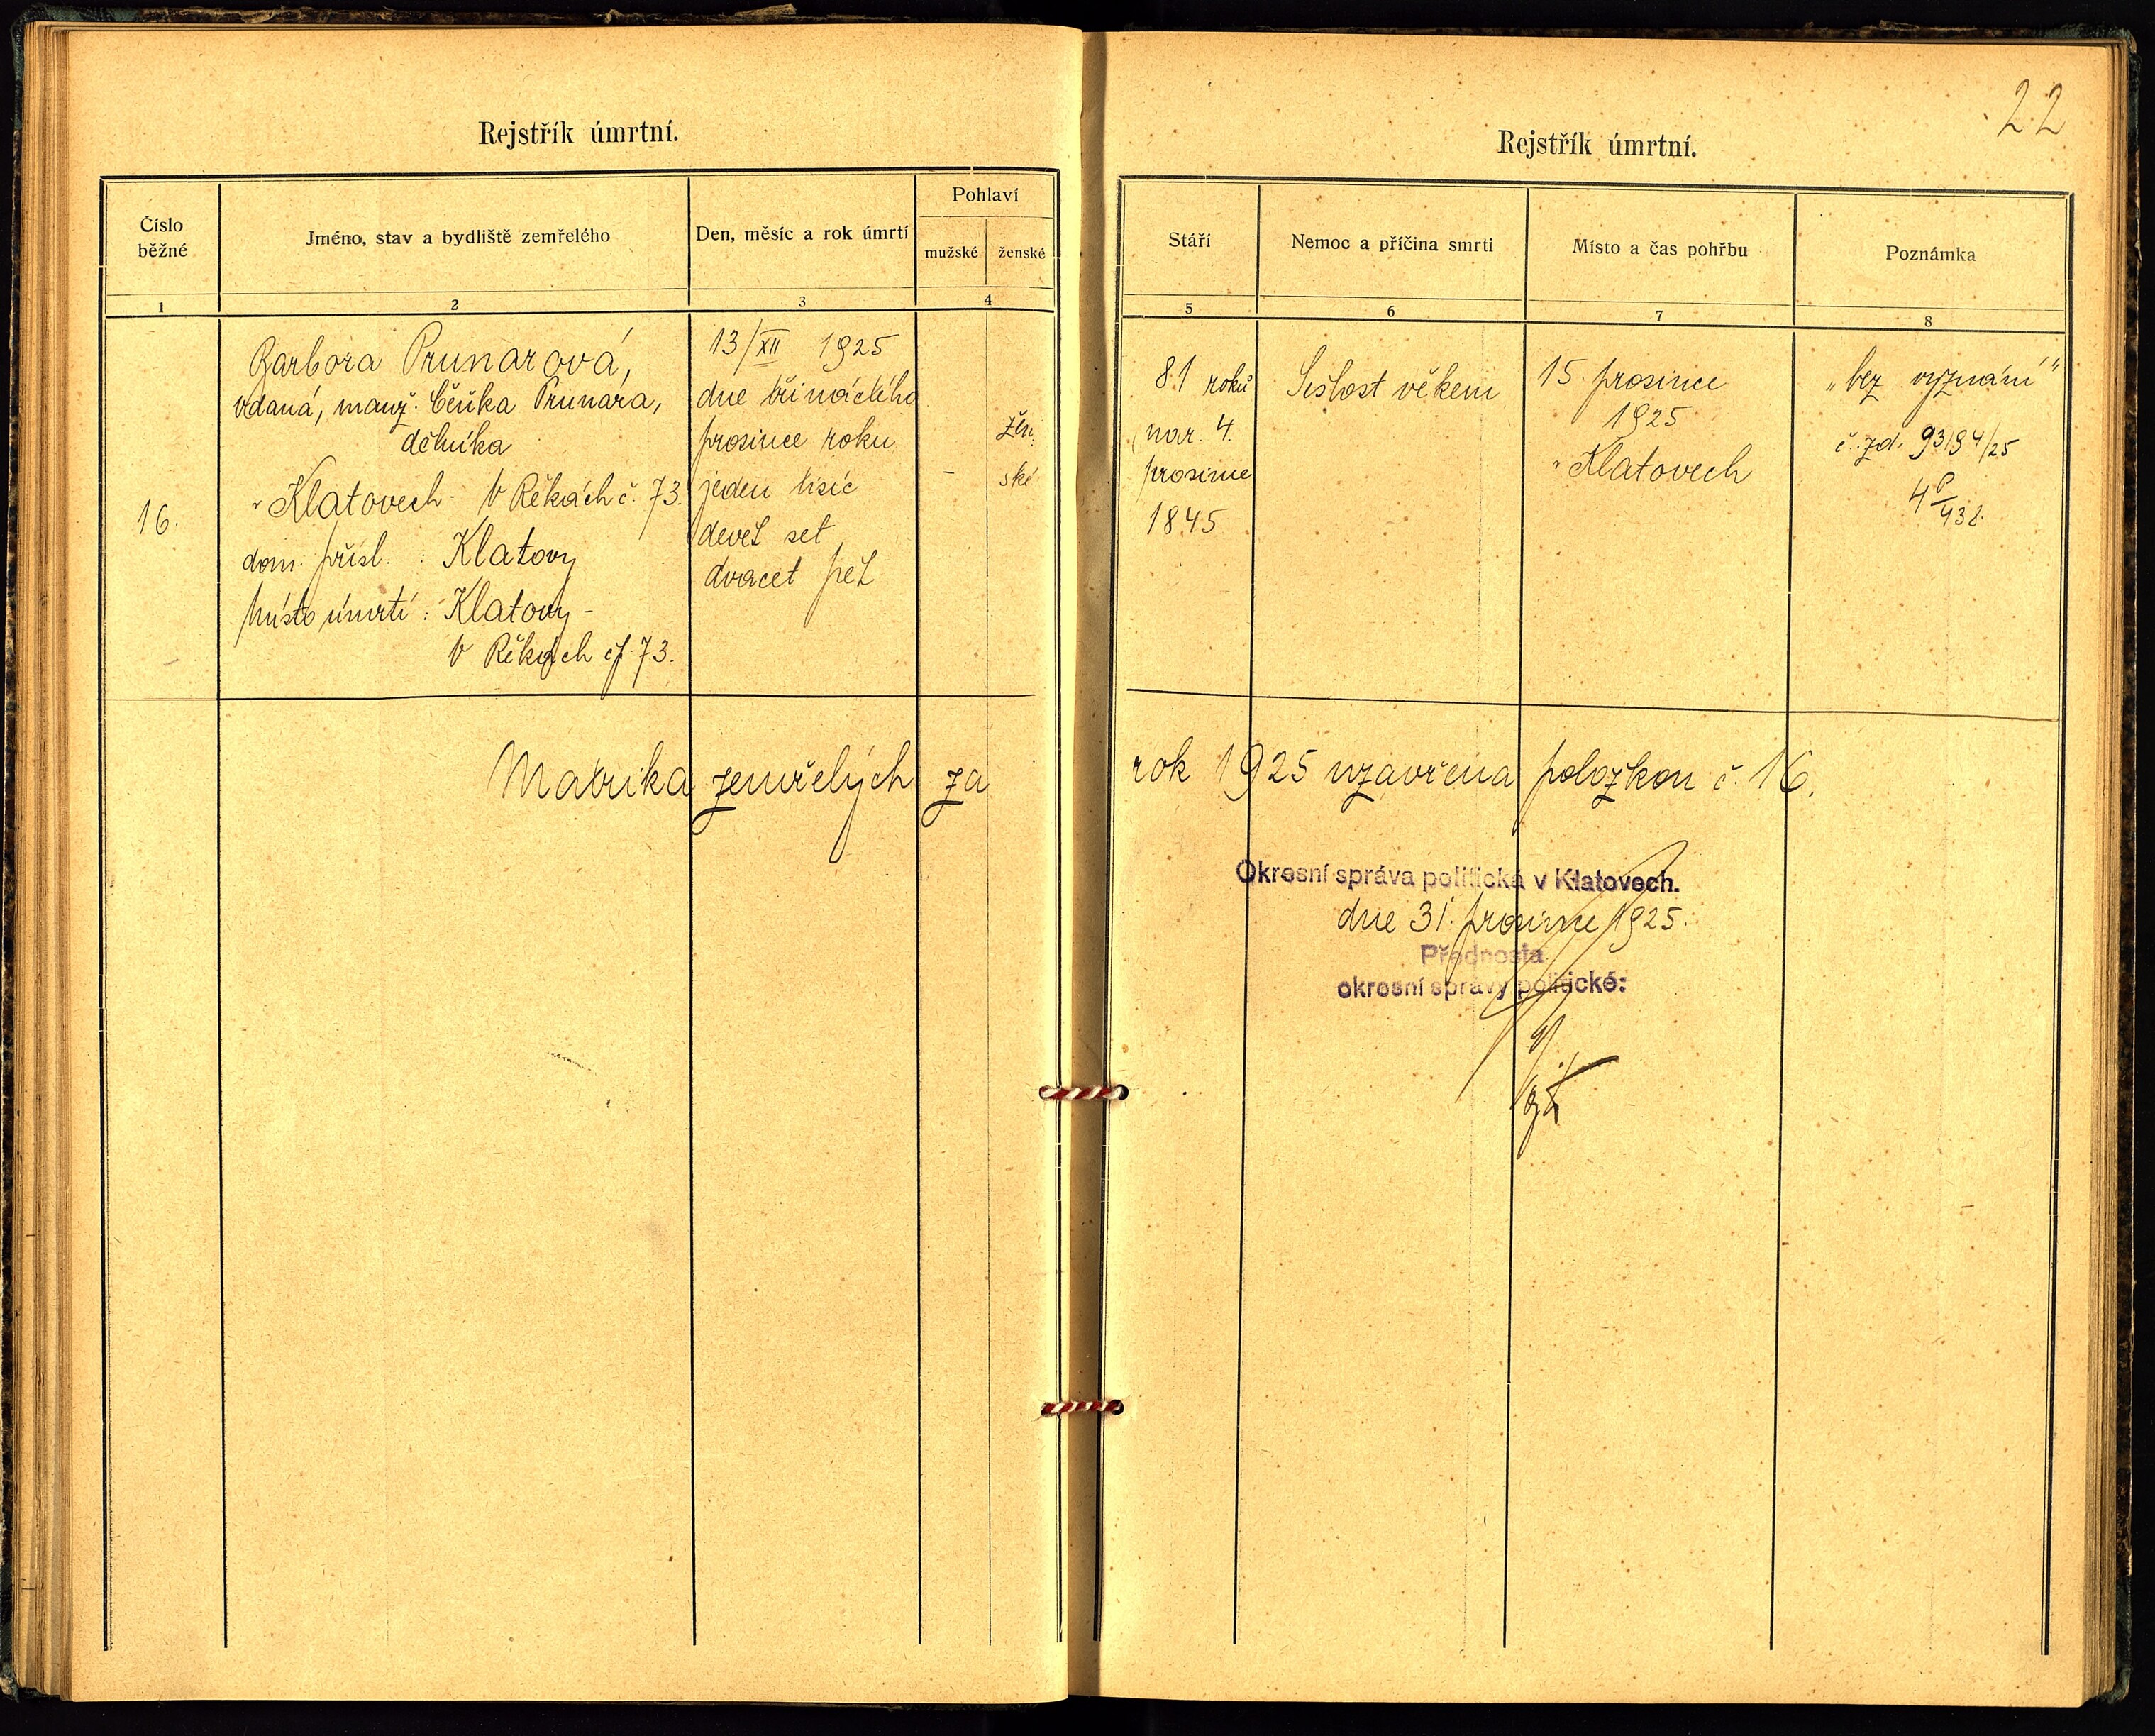 Rejstřík úmrtní.
Číslo
běžné
Jméno, stav a bydliště zemřelého
Den, měsíc a rok úmrtí
Pohlaví
mužské
ženské
1
2
3
4
16.
Barbora Prunarová,
vdaná, manž. Čeňka Prunara,
dělníka
v Klatovech - V Řékách č. 73.
dom. přísl. : Klatovy
místo úmrtí : Klatovy -
V Řékách čp. 73.
13/XII 1925
dne třináctého
prosince roku
jeden tisíc
devět set
dvacet pět
-
žen.
ské
Matrika zemřelých za
22
Rejstřík úmrtní.
Stáří
Nemoc a příčina smrti
Místo a čas pohřbu
Poznámka
5
6
7
8
81 roků
nar. 4.
prosince
1845
Sešlost věkem
15. prosince
1925
v Klatovech
„bez vyznání"
č. zd. 93/94/25
rok 1925 uzavřena položkou č. 16.
Okresní správa politická v Klatovech.
dne 31. prosince 1925.
Přednosta
okresní správy politické: